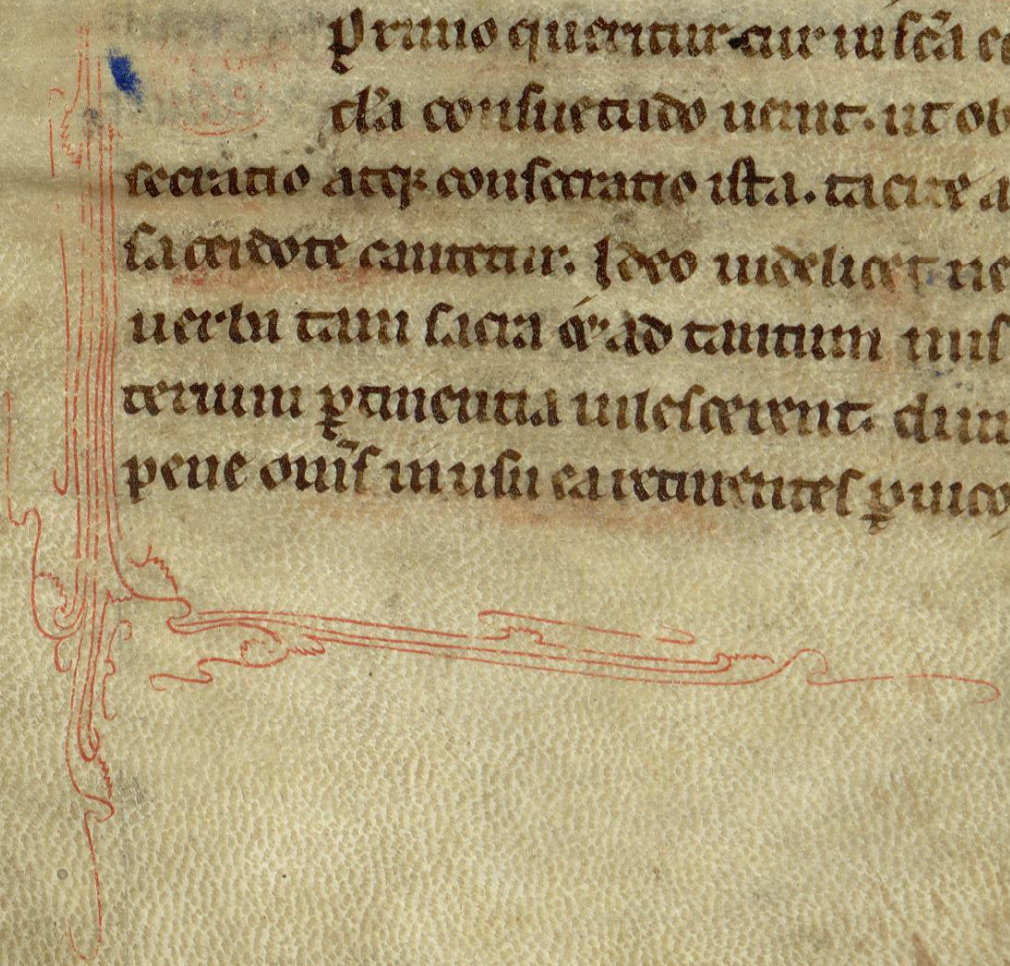 Primo queritur cur in sc̄a ec
cl̕a consuetudo uenit. ut ob
secratio atq; consecratio ista. tacite a
sacerdote cantetur. Ideo uidelicet ne
uerba tam sacra ⁊ ad tantum mis
terium ꝑtinentia uilescerent. dum
pene om̄s in usu ea retinentes ꝑ uico